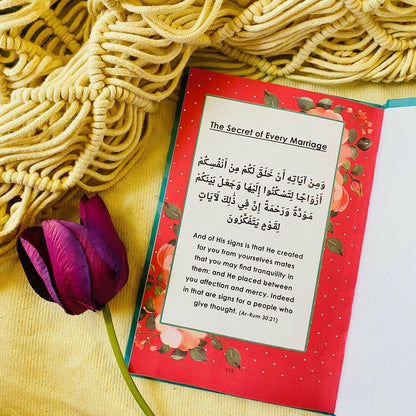 The Secret of Every Marriage
وَمِنْ آيَاتِهِ أَنْ خَلَقَ لَكُمْ مِنْ أَنْفُسِكُمْ
أَزْوَاجًا لِتَسْكُنُوا إِلَيْهَا وَجَعَلَ بَيْنَكُمْ
مَوَدَّةً وَرَحْمَةً إِنَّ فِي ذَلِكَ لَآيَاتٍ
لِقَوْمٍ يَتَفَكَّرُونَ
And of His signs is that He created
for you from yourselves mates
that you may find tranquility in
them; and He placed between
you affection and mercy. Indeed
in that are signs for a people who
give thought. (Ar-Rum 30:21)
112